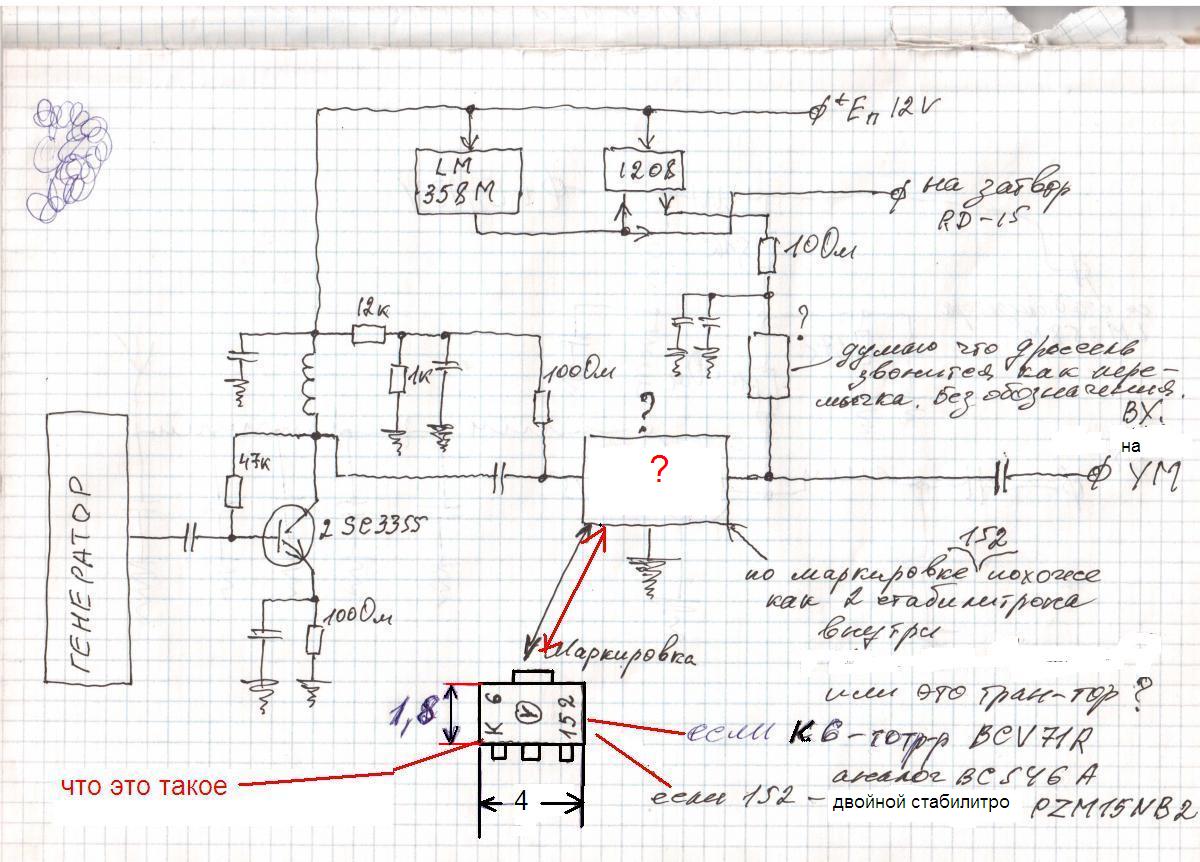 +Eп 12V
LM
358M
1208
на затвор
RD-15
100м
12к
?
1к
100Ом
думаю что дроссель
звонится как пере-
мычка. Без обозначения.
ВХ.
на
УМ
?
?
47к
2SC3355
ГЕНЕРАТОР
100Ом
152
по маркировке похоже
как 2 стабилитрона
внутри
Маркировка
или это тран-тор ?
1,8
К 6
Y
152
если К6-тотр-р BCV71R
аналог BC546A
что это такое
4
если 152 - двойной стабилитро PZM15NB2